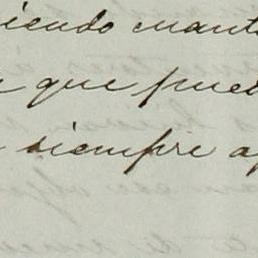 iendo cuant
que pued
siempre a